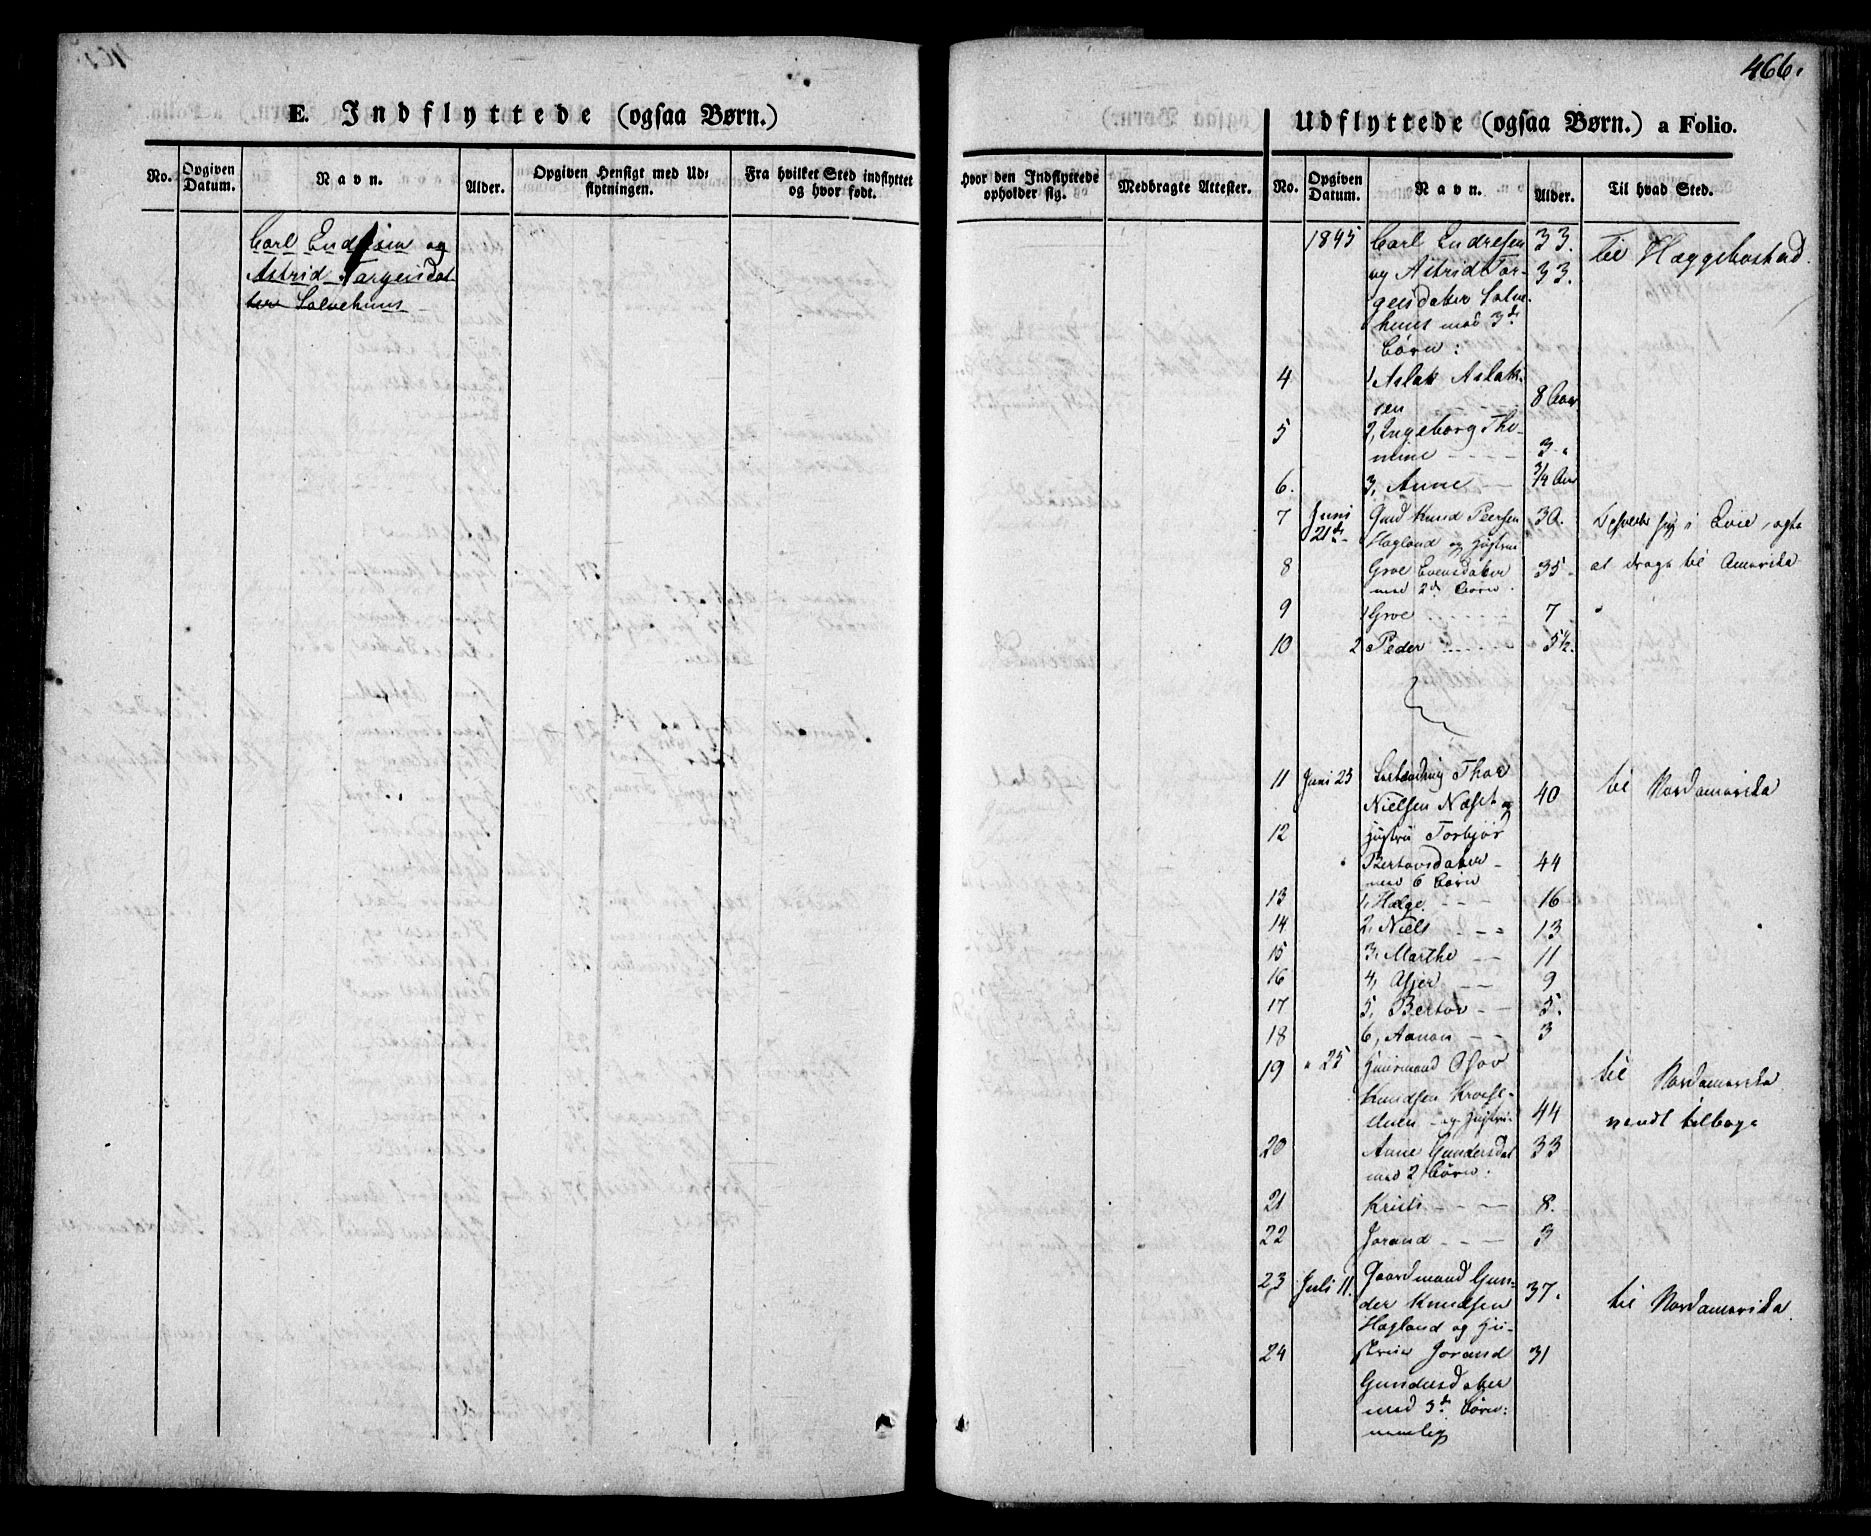 466.
E. Indflyttede (ogsaa Børn.)
No. Opgiven Datum. Navn. Alder. Opgiven Hensigt med Udflytningen. Fra hvilket Sted indflyttet og hvor født.
Carl Endresen og
Astrid Targersdat
ter Solvehuus
Hvor den Indflyttede opholder sig. Medbragte Attester.
Udflyttede (ogsaa Børn.) a Folio.
No. Opgiven Datum. Navn. Alder. Til hvad Sted.
1845 Carl Endresen 33. til Hæggebostad
og Astrid Tor- 33.
gersdater Solve-
huus med 3de
børn:
4 1, Aslak Aslak-
sen 8 Aar
5 2, Ingeborg Tho-
mine 3 "
6. 3, Anne 3/4 Aar
7 Juni 21de Gmd Knud Peersen 30. i Evie, agte
Hægland og Hustrue
8 Groe Evensdater 35 at drage til Amerika
med 2de børn.
9 1 Groe 7 "
10 2 Peder 5 1/2.
11 Juni 23 Thor
Nielsen Næset og 40 til Nordamerika
12 Hustru Torbjør
Bertovsdater 44
med 6 børn
13 1, Helge 16
14 2, Niels 13
15 3, Marthe 11
16 4, Asjer 9
17 5, Bertov 5.
18 6, Aanon 3
19 " 25 Huusmand Olav til Nordamerika
Knudsen
stuen og Hustru 44 vendt tilbage
20 Anne Gundersdat 33
med 2 børn:
21 Kristi 8.
22 Jorand 3
23 Juli 11. Gaardmand Gun-
der Knudsen 37. til Nordamerika
Hægland og Hu-
24 strue Jorand 31
Gundersdater
med 3de børn:
nemlig